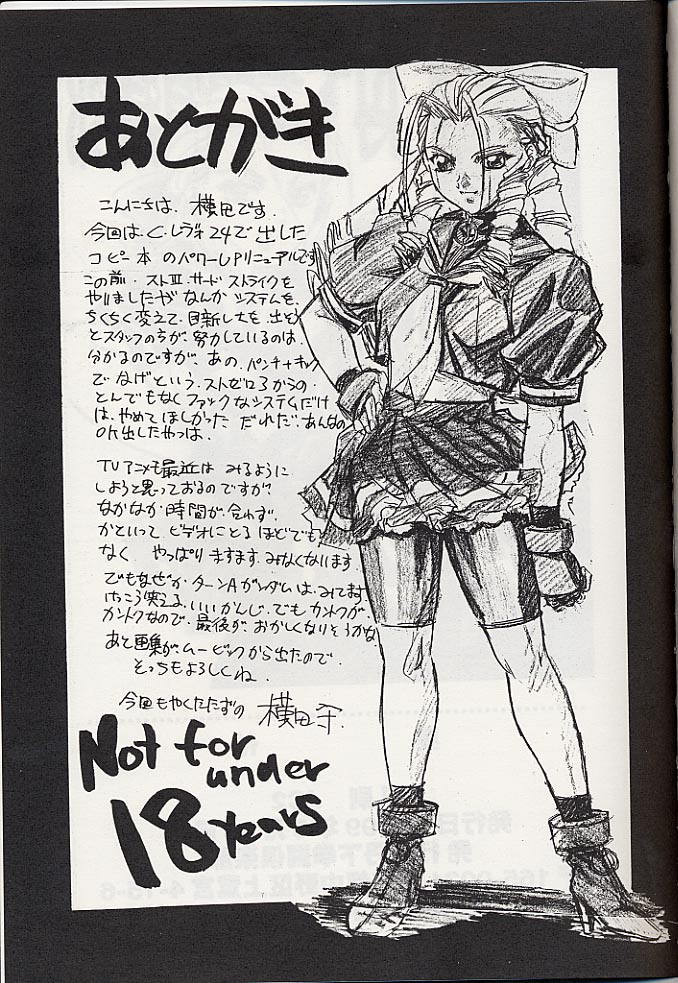 あとがき
こんにちは、横田です。
今回は、C.レヴォ24で出した
コピー本のパワーUPリニューアルです
この前、ストⅢ.サードストライクを
やりましたがなんかシステムを、
ちくちく変えて、目新しさを、出そう
とスタッフの方が、努力しているのは、
分かるのですが、あの、パンチ+キック
でなげという、ストゼロ3からの、
とんでもなくファックなシステムだけ
は、やめてほしかった だれだ、あんなの
OK出したやつは、
TVアニメも最近は みるように
しようと思っておるのですが、
なかなか時間が合わず、
かといって ビデオにとるほどでも
なく やっぱり ますます、みなくなります
でもなぜか ターンAガンダムは、みてます
けっこう笑える、いいかんじ、でも カントクが
カントクなので、最後が、おかしくなりそうかな
あと画集がムービックから出たので、
そっちもよろしくね、
今回もやくたたずの 横田守.
Not for
under
18 years